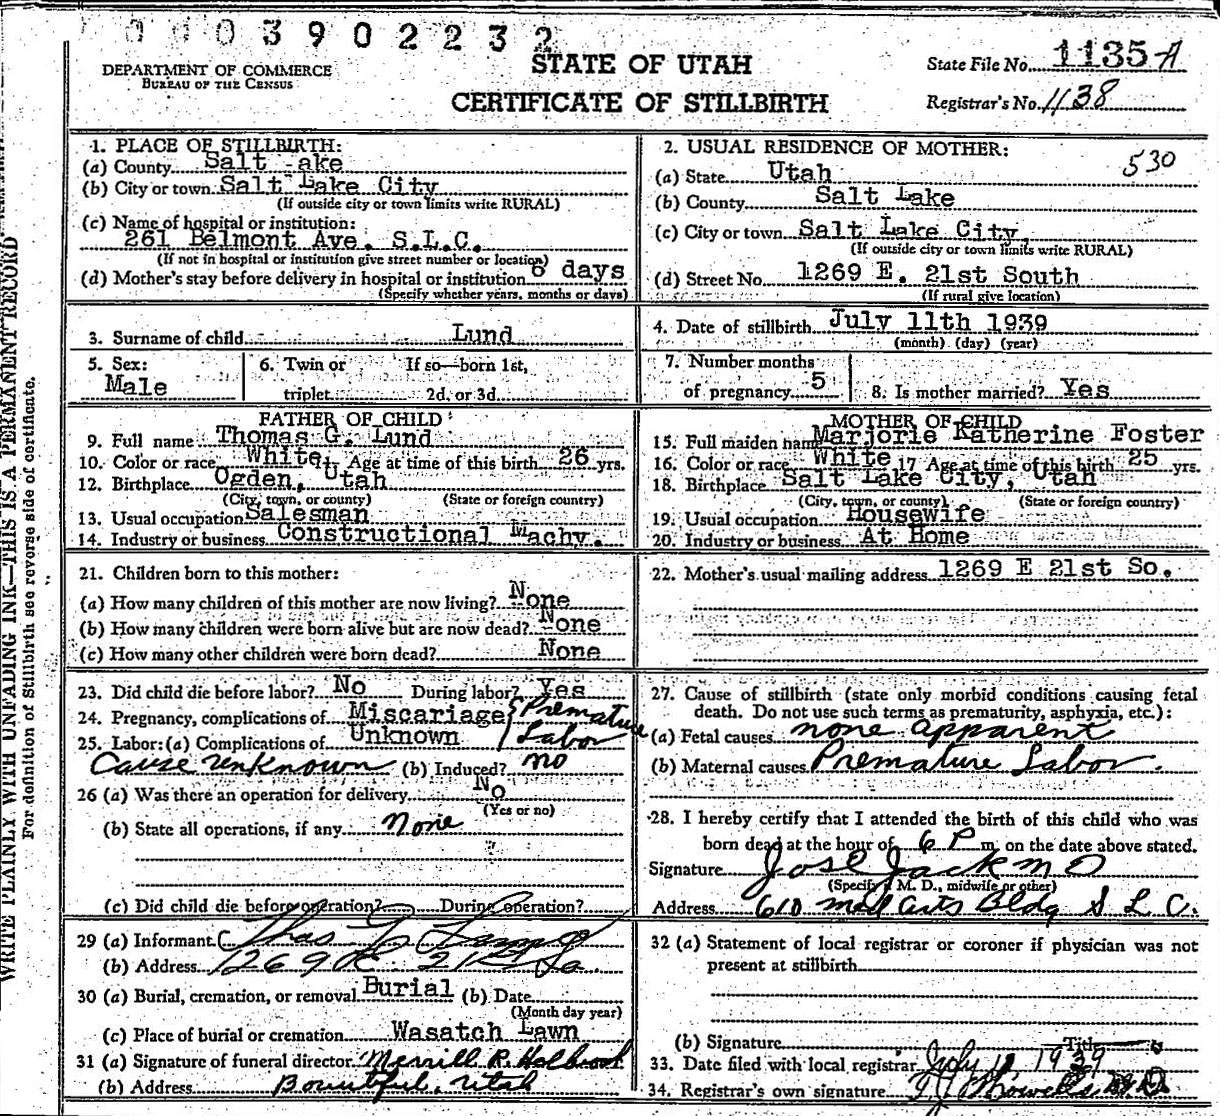 0003902232
DEPARTMENT OF COMMERCE
BUREAU OF THE CENSUS
STATE OF UTAH
CERTIFICATE OF STILLBIRTH
State File No. 1135-A
Registrar's No. 1138
WRITE PLAINLY, WITH UNFADING INK—THIS IS A PERMANENT RECORD
For definition of Stillbirth see reverse side of certificate.
1. PLACE OF STILLBIRTH:
(a) County Salt Lake
(b) City or town Salt Lake City
(If outside city or town limits write RURAL)
(c) Name of hospital or institution:
261 Belmont Ave. S.L.C.
(If not in hospital or institution give street number or location)
(d) Mother's stay before delivery in hospital or institution 6 days
(Specify whether years, months or days)
2. USUAL RESIDENCE OF MOTHER:
530
(a) State Utah
(b) County Salt Lake
(c) City or town Salt Lake City
(If outside city or town limits write RURAL)
(d) Street No. 1269 E. 21st South
(If rural give location)
3. Surname of child Lund
4. Date of stillbirth July 11th 1939
(month) (day) (year)
5. Sex:
Male
6. Twin or If so—born 1st,
triplet 2d, or 3d
7. Number months
of pregnancy 5
8. Is mother married? Yes
FATHER OF CHILD
9. Full name Thomas G. Lund
10. Color or race White Age at time of this birth 26 yrs.
12. Birthplace Ogden, Utah
(City, town, or county) (State or foreign country)
13. Usual occupation Salesman
14. Industry or business Constructional Machy.
MOTHER OF CHILD
15. Full maiden name Marjorie Katherine Foster
16. Color or race White 17 Age at time of this birth 25 yrs.
18. Birthplace Salt Lake City, Utah
(City, town, or county) (State or foreign country)
19. Usual occupation Housewife
20. Industry or business At Home
21. Children born to this mother:
(a) How many children of this mother are now living? None
(b) How many children were born alive but are now dead? None
(c) How many other children were born dead? None
22. Mother's usual mailing address 1269 E 21st So.
23. Did child die before labor? No During labor? Yes
24. Pregnancy, complications of Miscariage Premature
25. Labor: (a) Complications of Unknown Labor
Cause unknown (b) Induced? no
26 (a) Was there an operation for delivery No
(Yes or no)
(b) State all operations, if any none
(c) Did child die before operation? During operation?
27. Cause of stillbirth (state only morbid conditions causing fetal
death. Do not use such terms as prematurity, asphyxia, etc.):
(a) Fetal causes none apparent
(b) Maternal causes Premature Labor.
28. I hereby certify that I attended the birth of this child who was
born dead at the hour of 6 P m. on the date above stated.
Signature Jos E Jack M D
(Specify if M. D., midwife or other)
Address 610 Med Arts Bldg S L C.
29 (a) Informant Thos G Lund
(b) Address 1269 E. 21st So.
30 (a) Burial, cremation, or removal Burial (b) Date
(Month day year)
(c) Place of burial or cremation Wasatch Lawn
31 (a) Signature of funeral director Merrill R. Holbrook
(b) Address Bountiful, Utah
32 (a) Statement of local registrar or coroner if physician was not
present at stillbirth
(b) Signature Title
33. Date filed with local registrar July 1939
34. Registrar's own signature